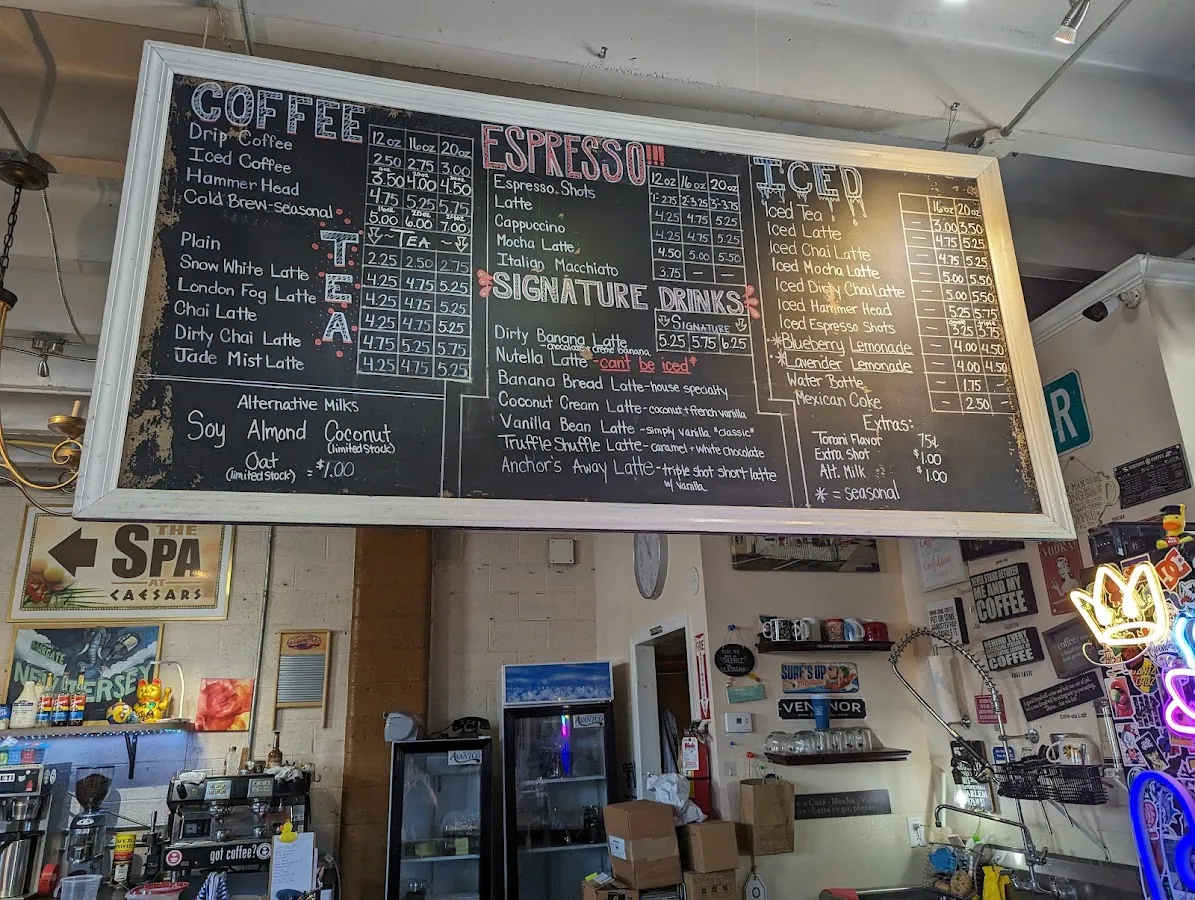 COFFEE
12 oz 16oz 20oz
Drip Coffee 2.50 2.75 3.00
Iced Coffee 3.50 4.00 4.50
Hammer Head 4.75 5.25 5.75
Cold Brew-seasonal 5.00 6.00 7.00
TEA
~ TEA ~
Plain 2.25 2.50 2.75
Snow White Latte 4.25 4.75 5.25
London Fog Latte 4.25 4.75 5.25
Chai Latte 4.25 4.75 5.25
Dirty Chai Latte 4.75 5.25 5.75
Jade Mist Latte 4.25 4.75 5.25
Alternative Milks
Soy Almond Coconut
(limited stock)
Oat = $1.00
(limited stock)
ESPRESSO!!!
12oz 16oz 20oz
Espresso Shots 1-2.75 2-3.25 3-3.75
Latte 4.25 4.75 5.25
Cappuccino 4.25 4.75 5.25
Mocha Latte 4.50 5.00 5.50
Italian Macchiato 3.75 - -
SIGNATURE DRINKS
SIGNATURE
5.25 5.75 6.25
Dirty Banana Latte
-chocolate + crème banana
Nutella Latte -can't be iced*
Banana Bread Latte-house specialty
Coconut Cream Latte-coconut + french vanilla
Vanilla Bean Latte -simply vanilla *classic*
Truffle Shuffle Latte-caramel + white chocolate
Anchor's Away Latte-triple shot short latte
w/ vanilla
ICED
16oz 20oz
Iced Tea 3.00 3.50
Iced Latte 4.75 5.25
Iced Chai Latte 4.75 5.25
Iced Mocha Latte 5.00 5.50
Iced Dirty Chai Latte 5.00 5.50
Iced Hammer Head 5.25 5.75
Iced Espresso Shots 3.25 3.75
*Blueberry Lemonade 4.00 4.50
*Lavender Lemonade 4.00 4.50
Water Bottle - 1.75 -
Mexican Coke - 2.50 -
Extras:
Torani Flavor 75¢
Extra shot $1.00
Alt. Milk $1.00
* = seasonal
THE
SPA
AT
CAESARS
MARGATE
NEW JERSEY
ADVNTCO
ADVNTCO
got coffee?
SURF'S UP
VENTNOR
SILENCE
NEVER STAND BETWEEN
ME AND MY
COFFEE
BEHIND EVERY
COFFEE
VODKA
Café au Lait
R